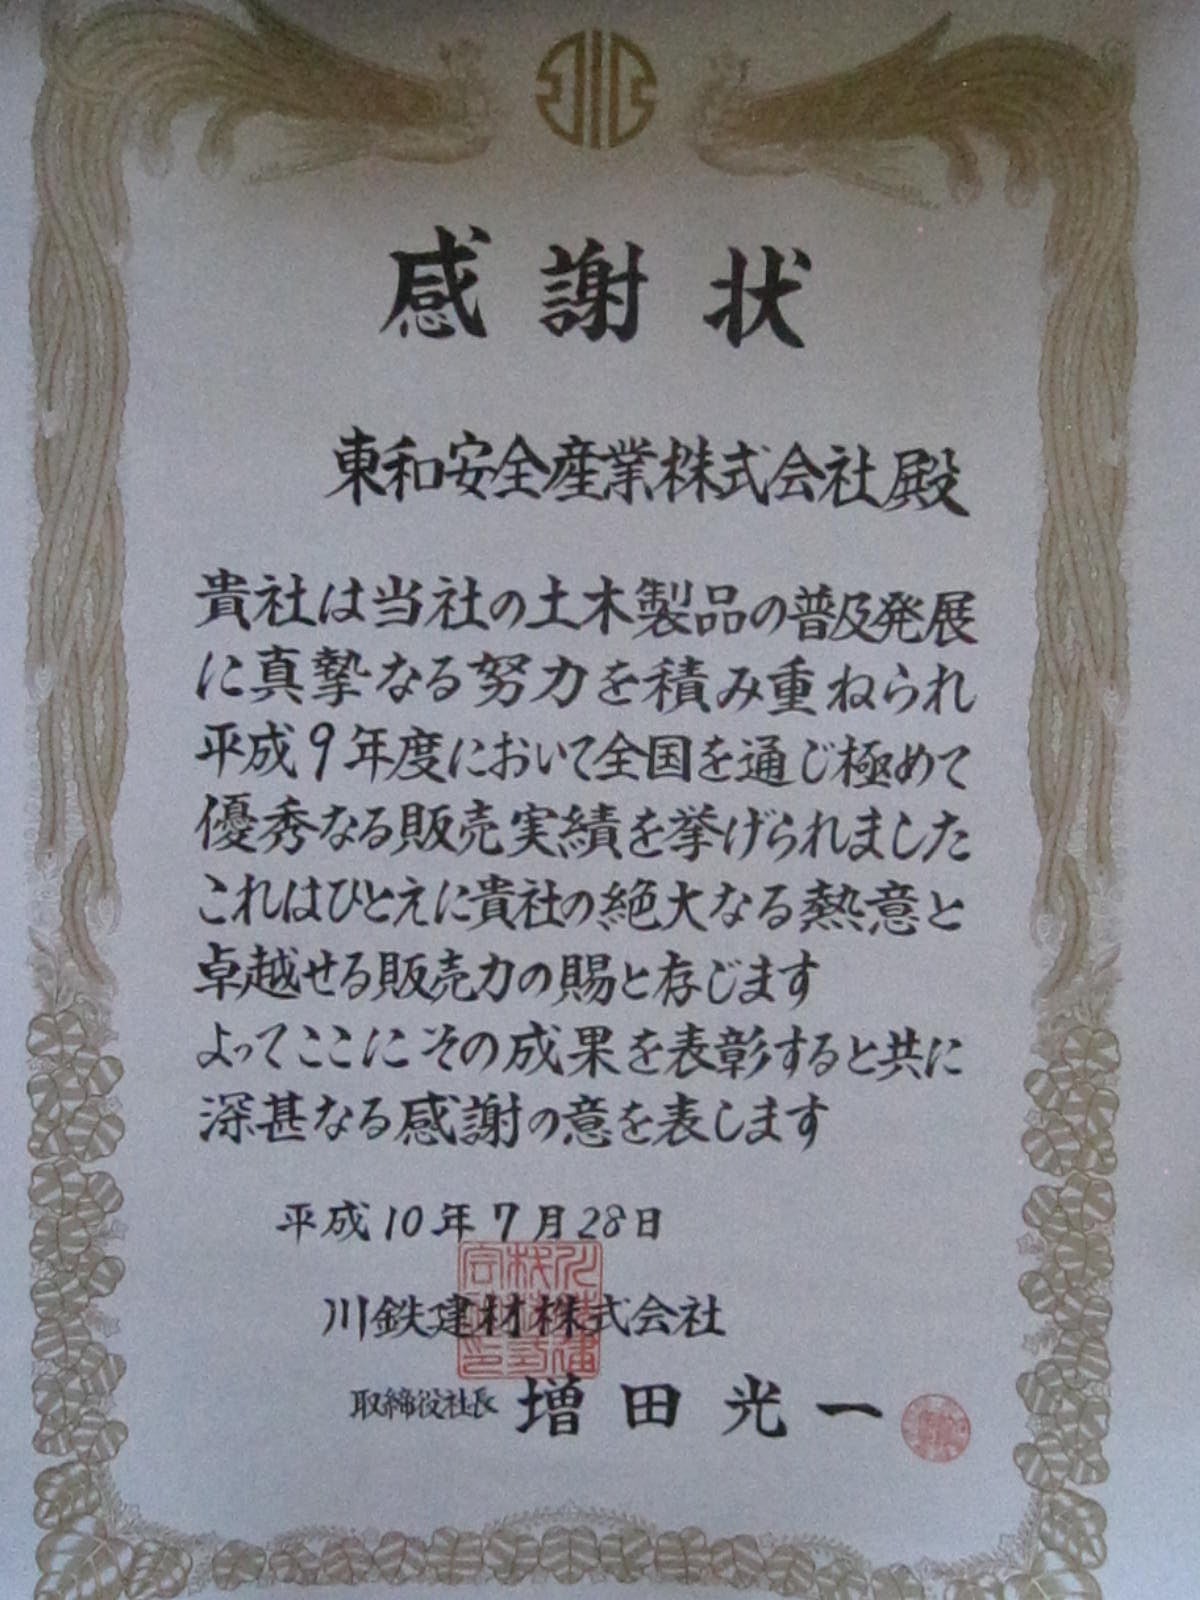 感謝状
東和安全産業株式会社殿
貴社は当社の土木製品の普及発展
に真摯なる努力を積み重ねられ
平成9年度において全国を通じ極めて
優秀なる販売実績を挙げられました
これはひとえに貴社の絶大なる熱意と
卓越せる販売力の賜と存じます
よってここにその成果を表彰すると共に
深甚なる感謝の意を表します
平成10年7月28日
川鉄建材株式会社
取締役社長 増田光一